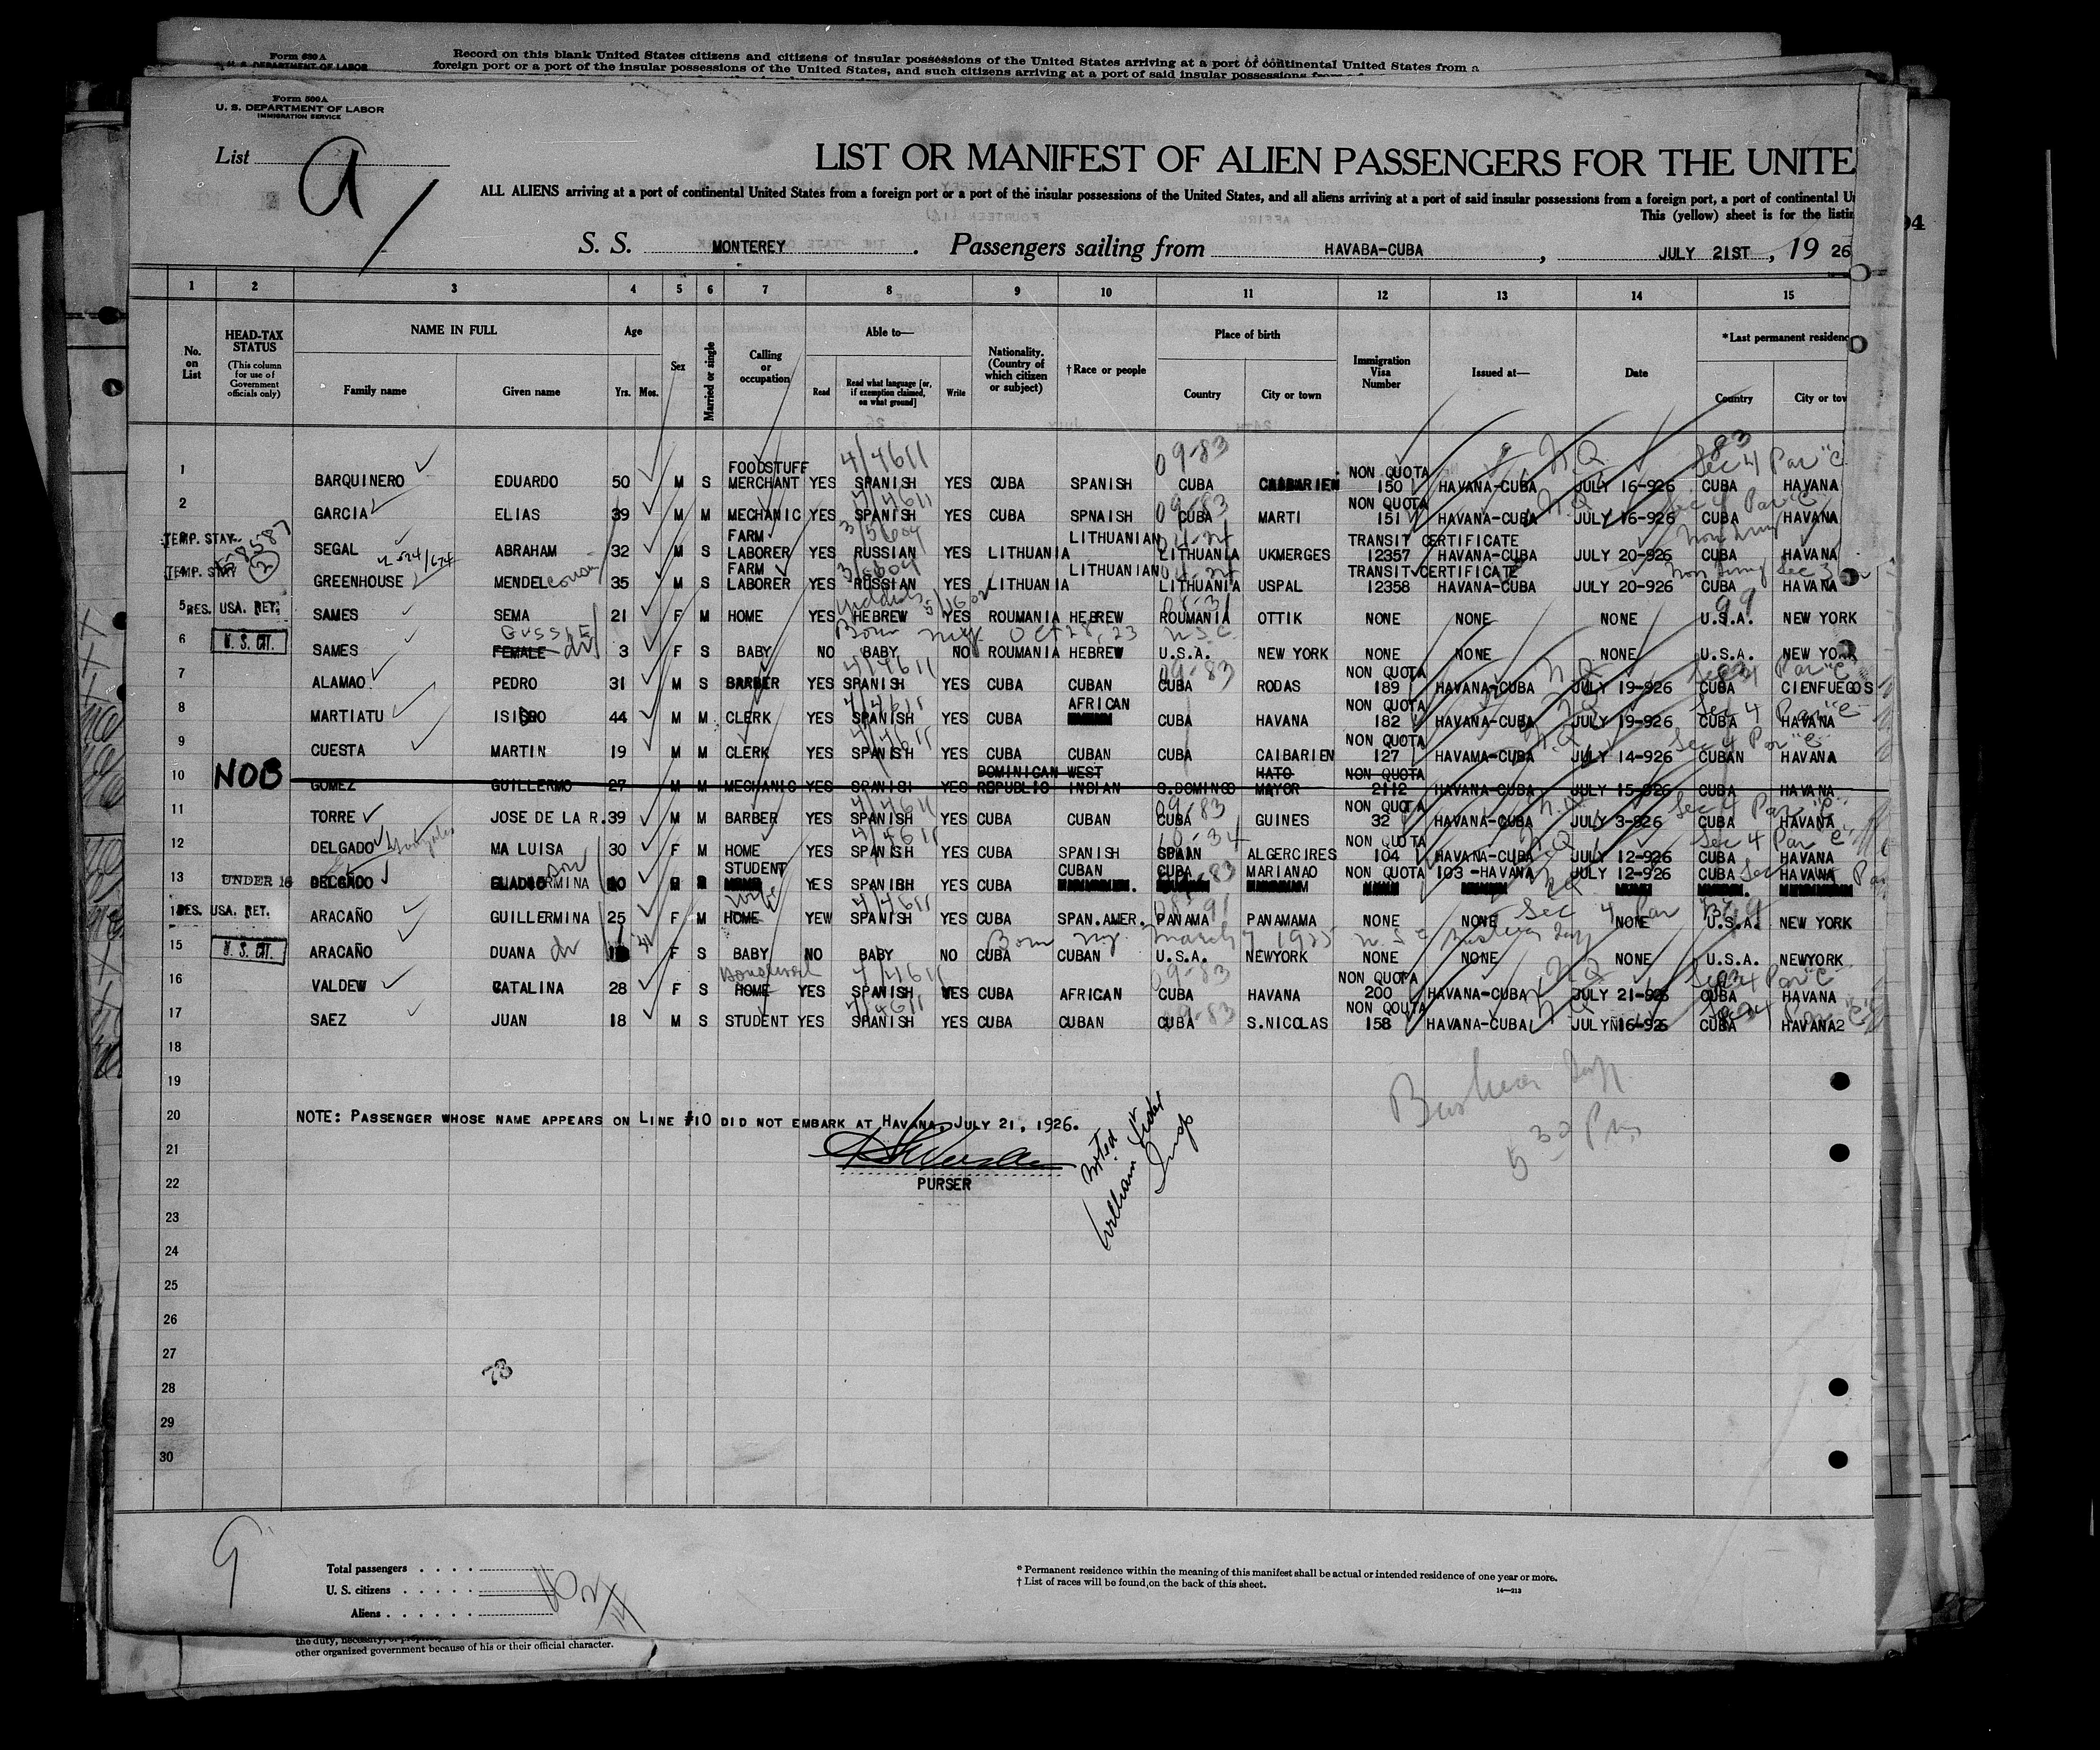 Form 630 A
U. S. DEPARTMENT OF LABOR
Record on this blank United States citizens and citizens of insular possessions of the United States arriving at a port of continental United States from a
foreign port or a port of the insular possessions of the United States, and such citizens arriving at a port of said insular possessions from a
Form 500 A
U. S. DEPARTMENT OF LABOR
IMMIGRATION SERVICE
List a
LIST OR MANIFEST OF ALIEN PASSENGERS FOR THE UNITE
ALL ALIENS arriving at a port of continental United States from a foreign port or a port of the insular possessions of the United States, and all aliens arriving at a port of said insular possessions from a foreign port, a port of continental U
This (yellow) sheet is for the listin
94
S. S. MONTEREY. Passengers sailing from HAVABA-CUBA, JULY 21ST, 19 26
1 2 3 4 5 6 7 8 9 10 11 12 13 14 15
No. on List HEAD-TAX STATUS (This column for use of Government officials only) NAME IN FULL Family name Given name Age Yrs. Mos. Sex Married or single Calling or occupation Able to— Read Read what language [or, if exemption claimed, on what ground] Write Nationality. (Country of which citizen or subject) †Race or people Place of birth Country City or town Immigration Visa Number Issued at— Date *Last permanent residenc Country City or tow
1 BARQUINERO EDUARDO 50 M S FOODSTUFF MERCHANT YES 4/4611 SPANISH YES CUBA SPANISH 09-83 CUBA CAIBARIEN NON QUOTA 150 HAVANA-CUBA N.Q. JULY 16-926 Sec 4 Par "C" CUBA HAVANA
2 GARCIA ELIAS 39 M M MECHANIC YES 4/4611 SPANISH YES CUBA SPNAISH 09-83 CUBA MARTI NON QUOTA 151 HAVANA-CUBA N.Q. JULY 16-926 Sec 4 Par "C" CUBA HAVANA
TEMP. STAY. SEGAL ABRAHAM 32 M S FARM LABORER YES 3/5604 RUSSIAN YES LITHUANIA LITHUANIAN LITHUANIA UKMERGES TRANSIT CERTIFICATE 12357 HAVANA-CUBA JULY 20-926 CUBA HAVANA
TEMP. STAY GREENHOUSE MENDEL cousin 35 M S FARM LABORER YES 3/5604 RUSSIAN YES LITHUANIA LITHUANIAN LITHUANIA USPAL TRANSIT CERTIFICATE 12358 HAVANA-CUBA JULY 20-926 Non Immg Sec 3 CUBA HAVANA
5 RES. USA. RET. SAMES SEMA 21 F M HOME YES Yiddish HEBREW YES ROUMANIA HEBREW ROUMANIA OTTIK NONE NONE NONE 99 U.S.A. NEW YORK
6 U. S. CIT. SAMES GUSSIE FEMALE 3 F S BABY NO BABY NO Born Oct 28, 23 U.S.C. ROUMANIA HEBREW U.S.A. NEW YORK NONE NONE NONE U.S.A. NEW YORK
7 ALAMAO PEDRO 31 M S BARBER YES 4/4611 SPANISH YES CUBA CUBAN 09-83 CUBA RODAS NON QUOTA 189 HAVANA-CUBA N.Q. JULY 19-926 CUBA CIENFUEGOS
8 MARTIATU ISIDRO 44 M M CLERK YES 4/4611 SPANISH YES CUBA AFRICAN CUBA HAVANA NON QUOTA 182 HAVANA-CUBA JULY 19-926 Sec 4 Par "C" CUBA HAVANA
9 CUESTA MARTIN 19 M M CLERK YES 4/4611 SPANISH YES CUBA CUBAN CUBA CAIBARIEN NON QUOTA 127 HAVAMA-CUBA N.Q. JULY 14-926 Sec 4 Par "C" CUBAN HAVANA
10 NOB GOMEZ GUILLERMO 27 M M MECHANIC YES SPANISH YES DOMINICAN REPUBLIC WEST INDIAN S.DOMINGO HATO MAYOR NON QUOTA 2112 HAVANA-CUBA JULY 15-926 CUBA HAVANA
11 TORRE JOSE DE LA R. 39 M M BARBER YES 4/4611 SPANISH YES CUBA CUBAN 09-83 CUBA GUINES NON QUOTA 32 HAVANA-CUBA N.Q. JULY 3-926 Sec 4 Par "C" CUBA HAVANA
12 DELGADO MA LUISA 30 F M HOME YES 4/4611 SPANISH YES CUBA SPANISH 10-34 SPAIN ALGERCIRES NON QUOTA 104 HAVANA-CUBA JULY 12-926 Sec 4 Par "C" CUBA HAVANA
13 UNDER 16 DELGADO son STUDENT YES SPANISH YES CUBA CUBAN CUBA MARIANAO NON QUOTA 103 -HAVANA JULY 12-926 CUBA HAVANA
RES. USA. RET. ARACAÑO GUILLERMINA 25 F M wife HOME YEW 4/4611 SPANISH YES CUBA SPAN.AMER. PANAMA PANAMAMA NONE NONE Sec 4 Par NONE U.S.A. NEW YORK
15 U. S. CIT. ARACAÑO DUANA F S BABY NO BABY NO Born March 7 1925 CUBA CUBAN U.S.A. NEWYORK NONE NONE NONE U.S.A. NEWYORK
16 VALDEW CATALINA 28 F S HOME YES 4/4611 SPANISH YES CUBA AFRICAN 09-83 CUBA HAVANA NON QUOTA 200 HAVANA-CUBA N.Q. JULY 21-926 CUBA HAVANA
17 SAEZ JUAN 18 M S STUDENT YES 4/4611 SPANISH YES CUBA CUBAN 09-83 CUBA S.NICOLAS NON QOUTA 158 HAVANA-CUBA JULY 16-926 CUBA HAVANA2
18
19
20 NOTE: PASSENGER WHOSE NAME APPEARS ON LINE #10 DID NOT EMBARK AT HAVANA, JULY 21, 1926.
21
22 PURSER
noted
William
Insp
5 30 Pm
23
24
25
26
27
73
28
29
30
Total passengers
U. S. citizens
Aliens
* Permanent residence within the meaning of this manifest shall be actual or intended residence of one year or more.
† List of races will be found on the back of this sheet.
14—213
other organized government because of his or their official character.